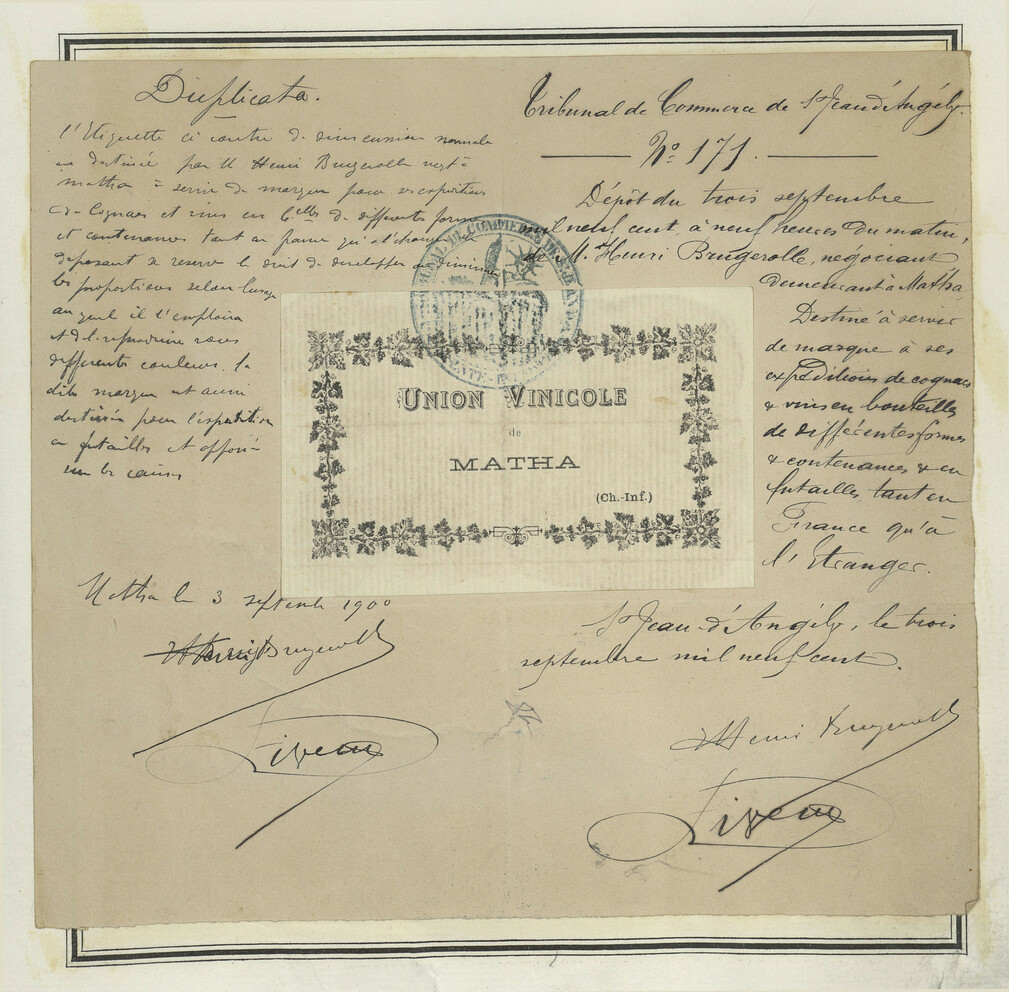 Duplicata.
l'Etiquette ci contre de dimension normale
est destinée par M Henri Brugerolle negt à
Matha à servir de marque pour ses expéditions
de Cognacs et vins en Blles de différentes formes
et contenances tant en france qu'à l'étranger
deposant se reserve le droit de developper ou diminuer
les proportions selon l'usage
auquel il l'emploira
et de l'reproduire sous
differents couleurs. la
dite marque est aussi
destinée pour l'expédition
en futailles et apposée
sur les caisses
Matha le 3 septembre 1900
Henri Brugerolle
Tribunal de Commerce de St Jean d'Angély.
No 171.
Dépôt du trois septembre
mil neuf cent, à neuf heures du matin,
de M. Henri Brugerolle, négociant
demeurant à Matha
Destiné à servir
de marque à ses
expéditions de cognacs
& vins en bouteilles
de différentes formes
& contenances & en
futailles tant en
France qu'à
l'Etranger.
St Jean-d'Angély, le trois
septembre mil neuf cent.
Henri Brugerolle
TRIBUNAL DE COMMERCE DE ST JEAN D'A
UNION VINICOLE
de
MATHA
(Ch.-Inf.)